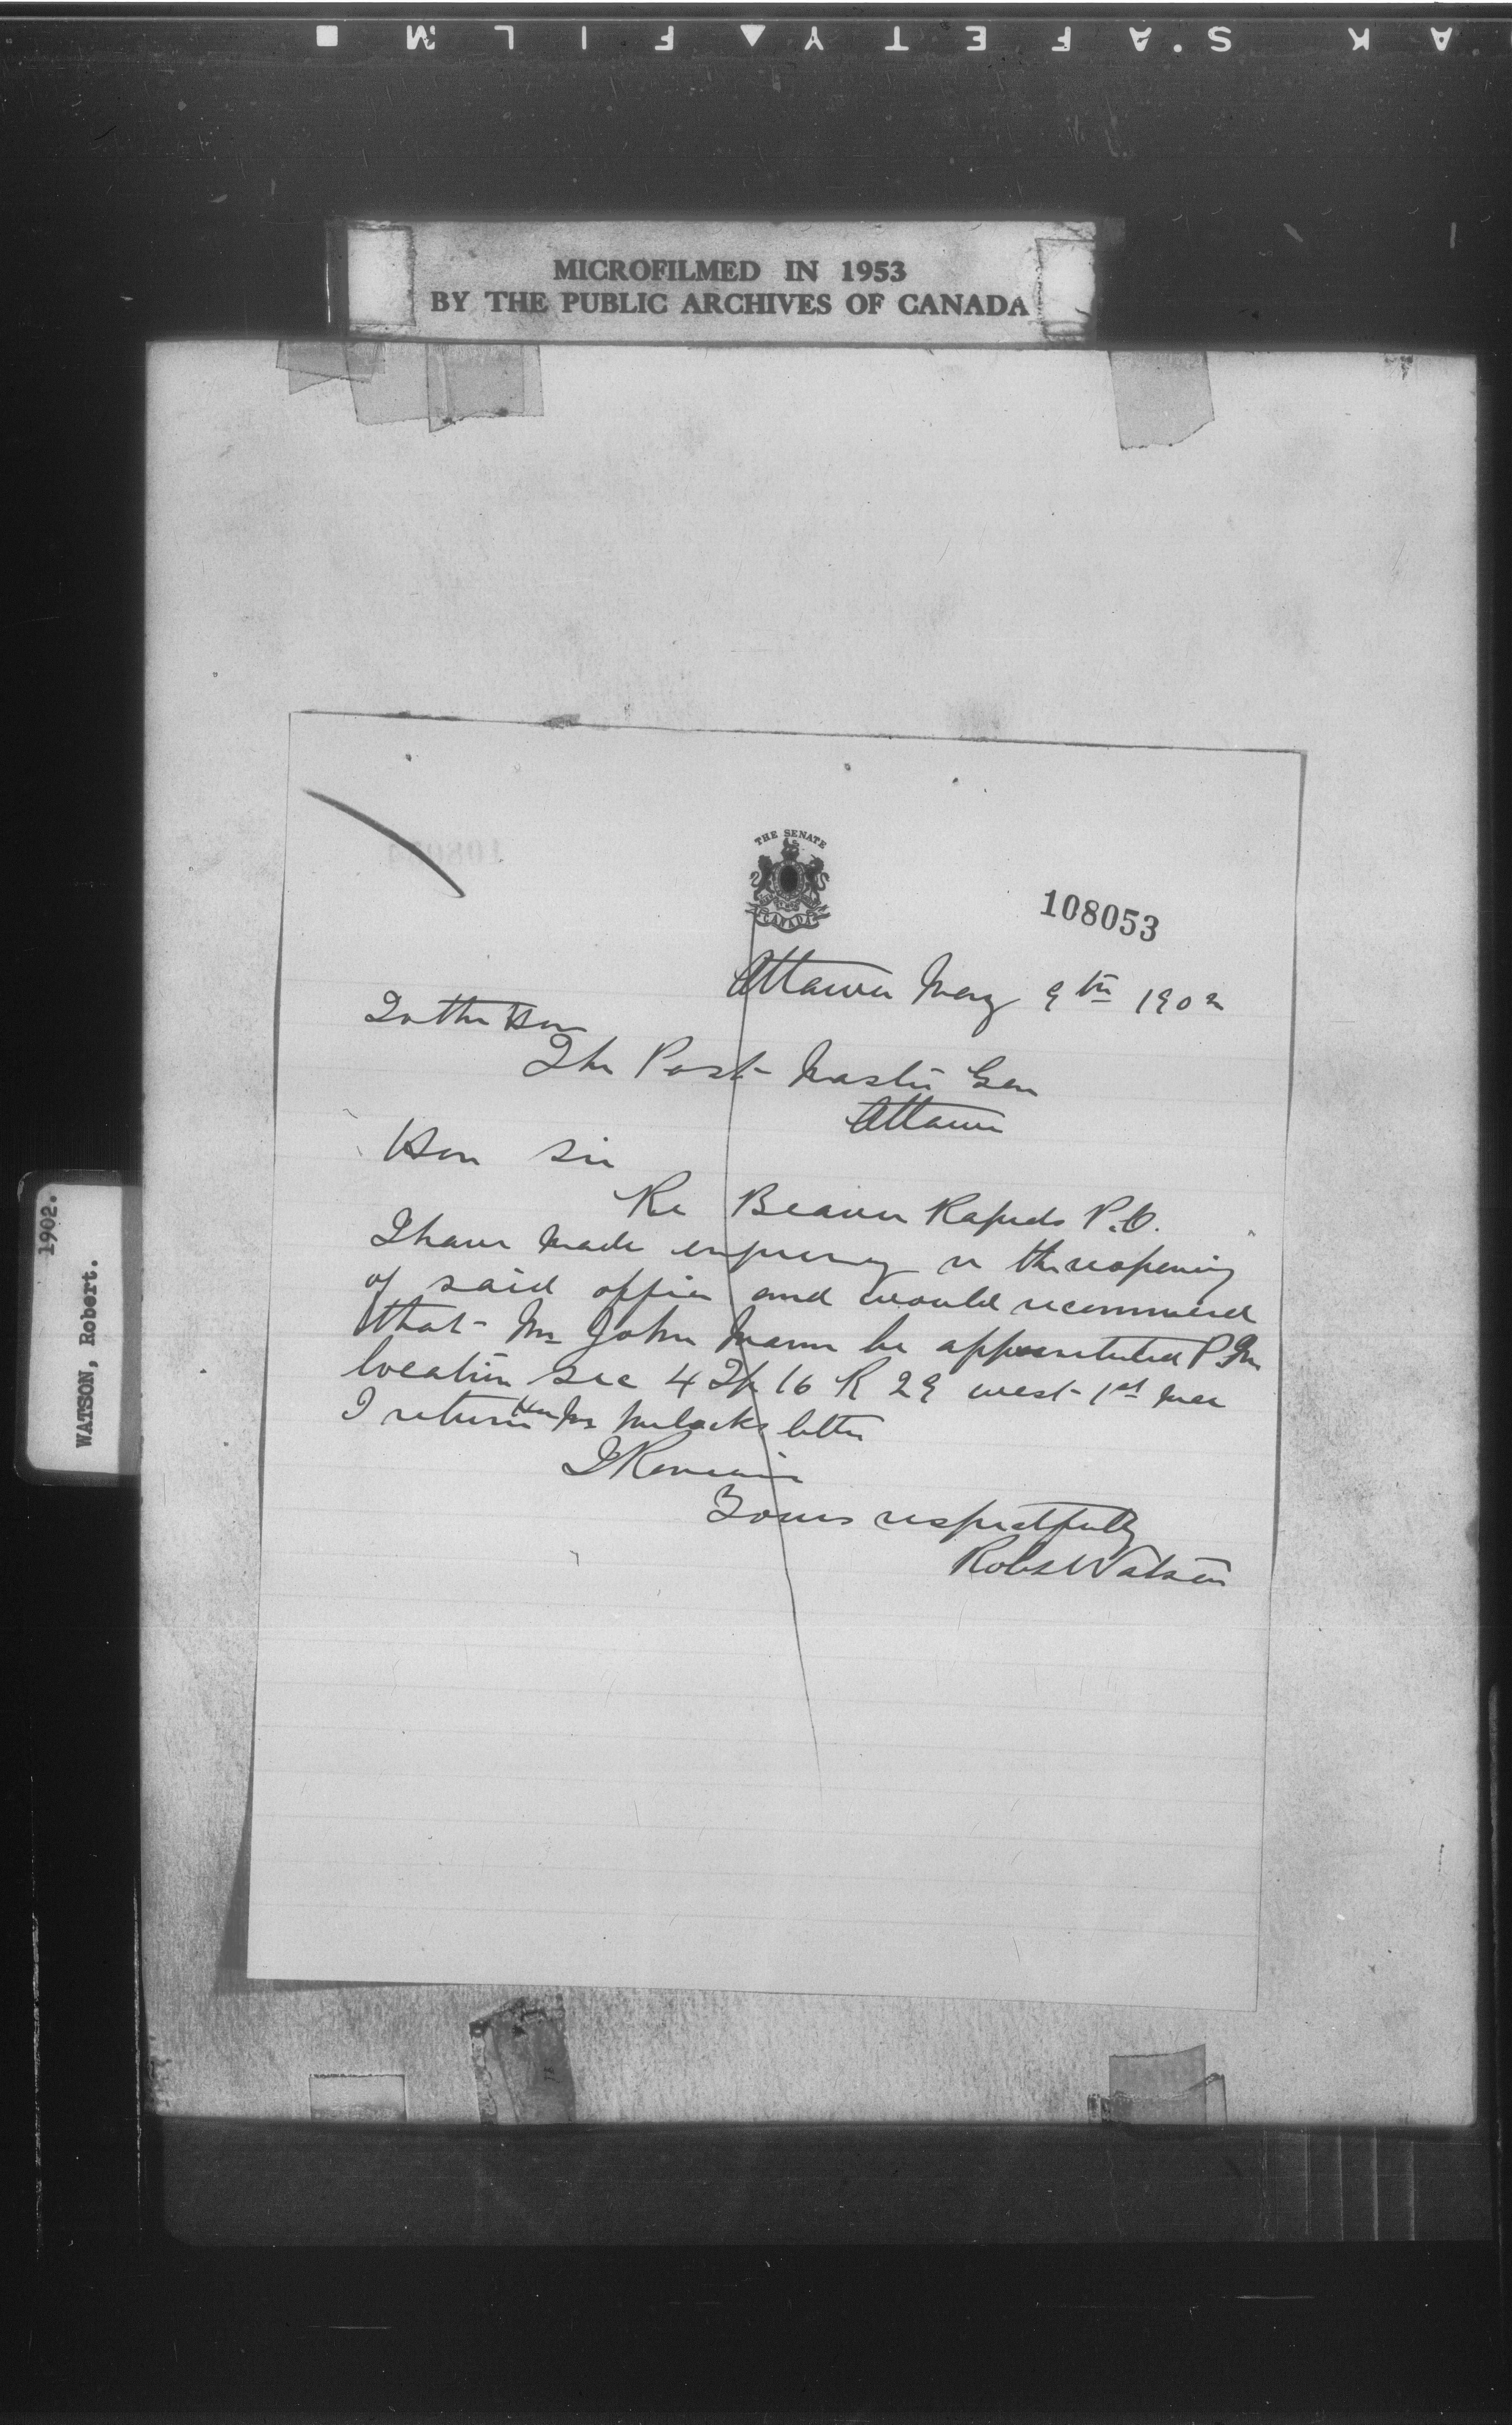 KAK S'AFETY▲FILM■
MICROFILMED IN 1953
BY THE PUBLIC ARCHIVES OF CANADA
THE SENATE
CANADA
108053
Ottawa May 9th 1902
To the Hon
The Post Master Gen
Ottawa
Hon Sir
Re Beaver Rapids P.O.
I have made enquiry re the reopening
of said office and would recommend
that Mr John Mann be appointed P.M.
location Sec 4 Tp 16 R 29 west 1st Mer
I return Hon Mr Mulocks letter
I Remain
Yours respectfully
Robt Watson
WATSON, Robert.
1902.